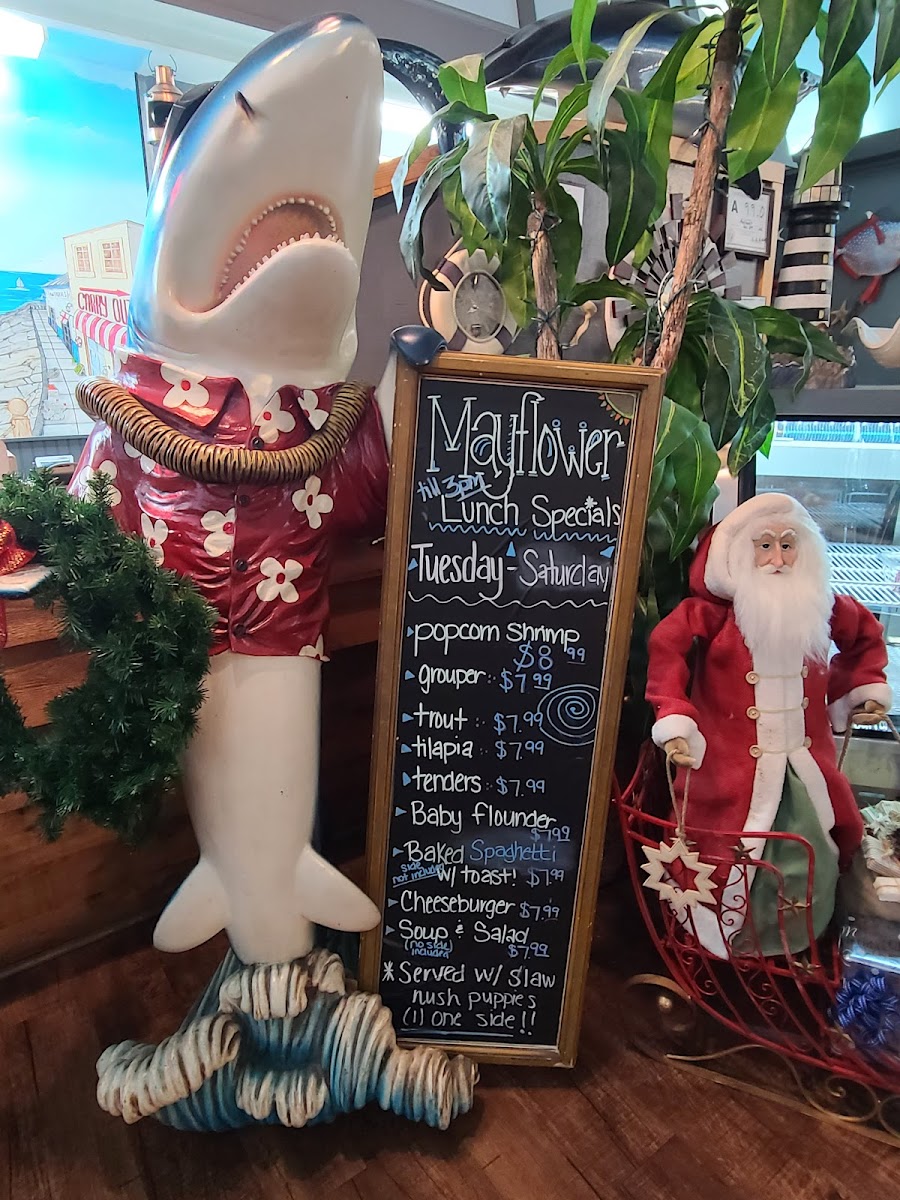 CARRY OU
A 99.0
Mayflower
till 3pm
Lunch Specials
Tuesday - Saturday
popcorn Shrimp
$8 99
grouper :· $7.99
trout :: $7.99
tilapia :· $7.99
tenders : $7.99
Baby flounder
$7.99
Baked Spaghetti
side not included w/ toast! $7.99
Cheeseburger $7.99
Soup & Salad
(no side included) $7.99
* Served w/ Slaw
hush puppies
(1) One side!!